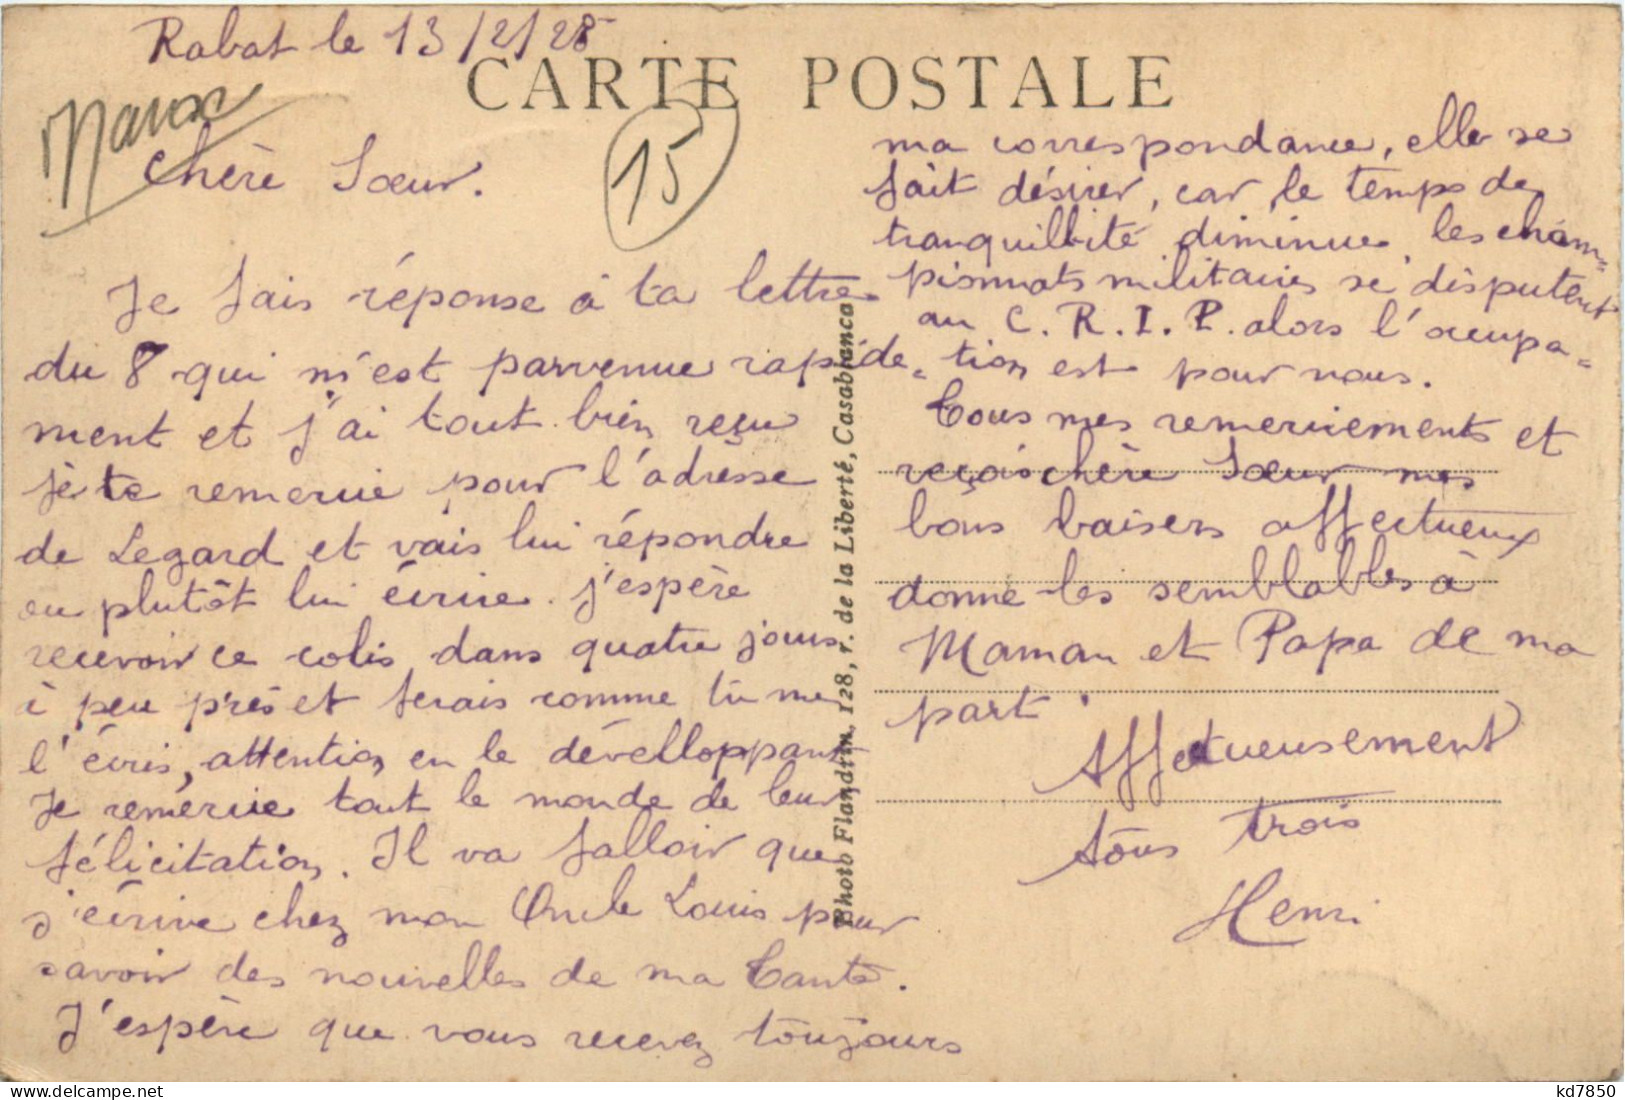 Rabat le 13/2/28
CARTE POSTALE
Maroc
15
Chère Soeur.
Je fais réponse à ta lettre
du 8 qui m'est parvenue rapide-
ment et j'ai tout bien reçu
je te remercie pour l'adresse
de Legard et vais lui répondre
ou plutôt lui écrire. j'espère
recevoir ce colis dans quatre jours
à peu près et ferais comme tu me
l'écris, attention en le dévelloppant
Je remercie tout le monde de leur
félicitation. Il va falloir que
j'écrive chez mon Oncle Louis pour
savoir des nouvelles de ma Tante.
J'espère que vous recevez toujours
ma correspondance, elle se
fait désirer, car le temps de
tranquillité diminue, les cham=
pionnats militaires se disputent
au C.R.I.P. alors l'occupa=
tion est pour nous.
Tous mes remerciements et
reçois chère Soeur mes
bons baisers affectueux
donne les semblables à
Maman et Papa de ma
part.
Affectueusement
tous trois
Henri
Photo Flandrin, 128, r. de la Liberté, Casablanca
kd7850